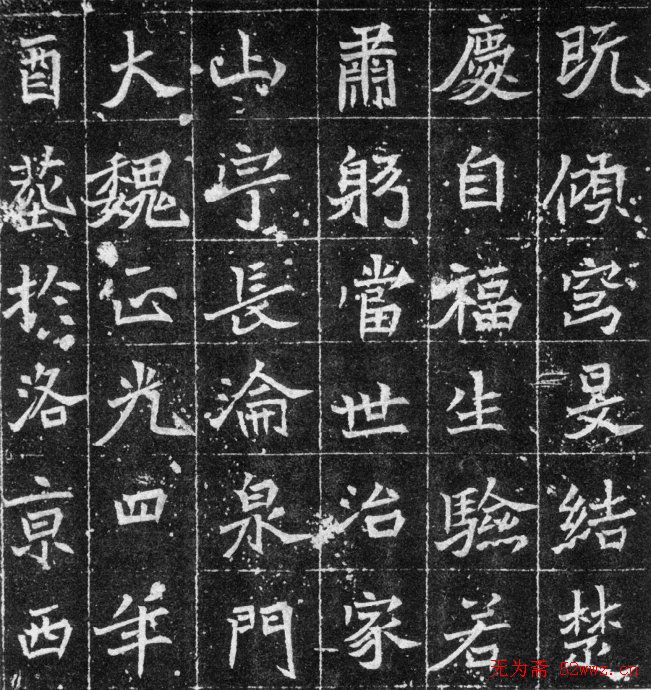 既傾穹旻結楚
慶自福生驗若
肅躬當世治家
山宁長淪泉門
大魏正光四年
酉塟於洛京西
无为斋 52wwz.cn